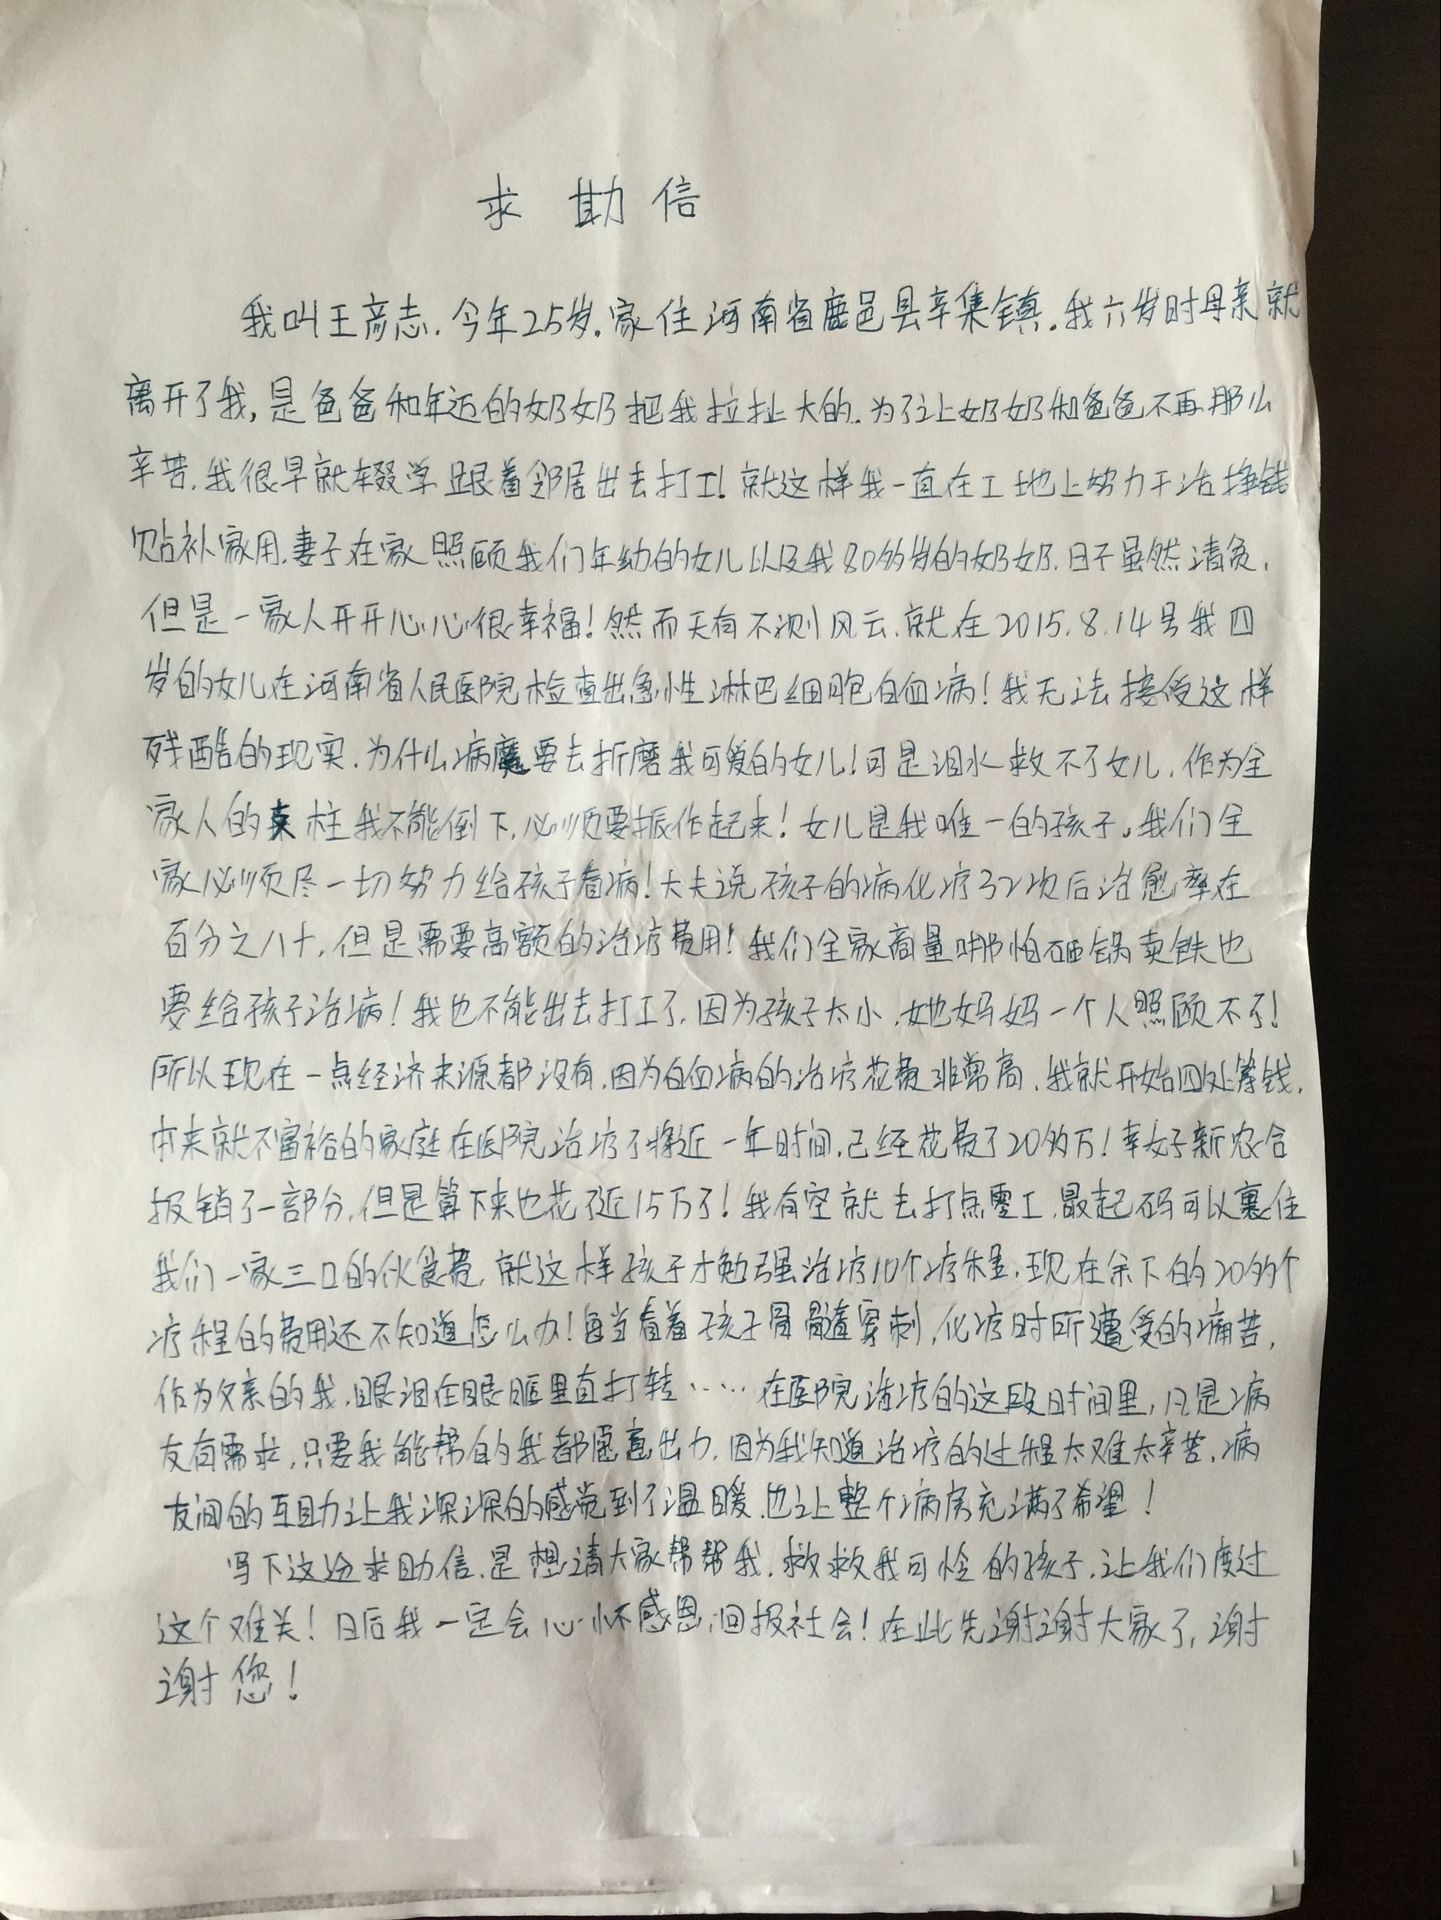 求助信
我叫王彦志.今年25岁.家住河南省鹿邑县辛集镇.我六岁时母亲就
离开了我,是爸爸和年迈的奶奶把我拉扯大的.为了让奶奶和爸爸不再那么
辛苦.我很早就辍学跟着邻居出去打工!就这样我一直在工地上努力干活挣钱
贴补家用.妻子在家照顾我们年幼的女儿以及我80多岁的奶奶.日子虽然清贫,
但是一家人开开心心很幸福!然而天有不测风云.就在2015.8.14号我四
岁的女儿在河南省人民医院检查出急性淋巴细胞白血病!我无法接受这样
残酷的现实.为什么病魔要去折磨我可爱的女儿!可是泪水救不了女儿.作为全
家人的柱我不能倒下,必须要振作起来!女儿是我唯一的孩子。我们全
家必须尽一切努力给孩子看病!大夫说孩子的病化疗32次后治愈率在
百分之八十,但是需要高额的治疗费用!我们全家商量哪怕砸锅卖铁也
要给孩子治病!我也不能出去打工了,因为孩子太小,她妈妈一个人照顾不了!
所以现在一点经济来源都没有.因为白血病的治疗花费非常高.我就开始四处筹钱.
本来就不富裕的家庭在医院治疗了将近一年时间,已经花费了20多万!幸好新农合
报销了一部分,但是算下来也花了近15万了!我有空就去打点零工,最起码可以裹住
我们一家三口的伙食费,就这样孩子才勉强治疗10个疗程,现在余下的20多个
疗程的费用还不知道怎么办!每当看着孩子骨髓穿刺,化疗时所遭受的痛苦,
作为父亲的我.眼泪在眼眶里直打转……在医院治疗的这段时间里,凡是病
友有需求,只要我能帮的我都愿意出力.因为我知道治疗的过程太难太辛苦,病
友间的互助让我深深的感觉到了温暖.也让整个病房充满了希望!
写下这份求助信.是想请大家帮帮我.救救我可怜的孩子.让我们度过
这个难关!日后我一定会心怀感恩,回报社会!在此先谢谢大家了,谢
谢您!